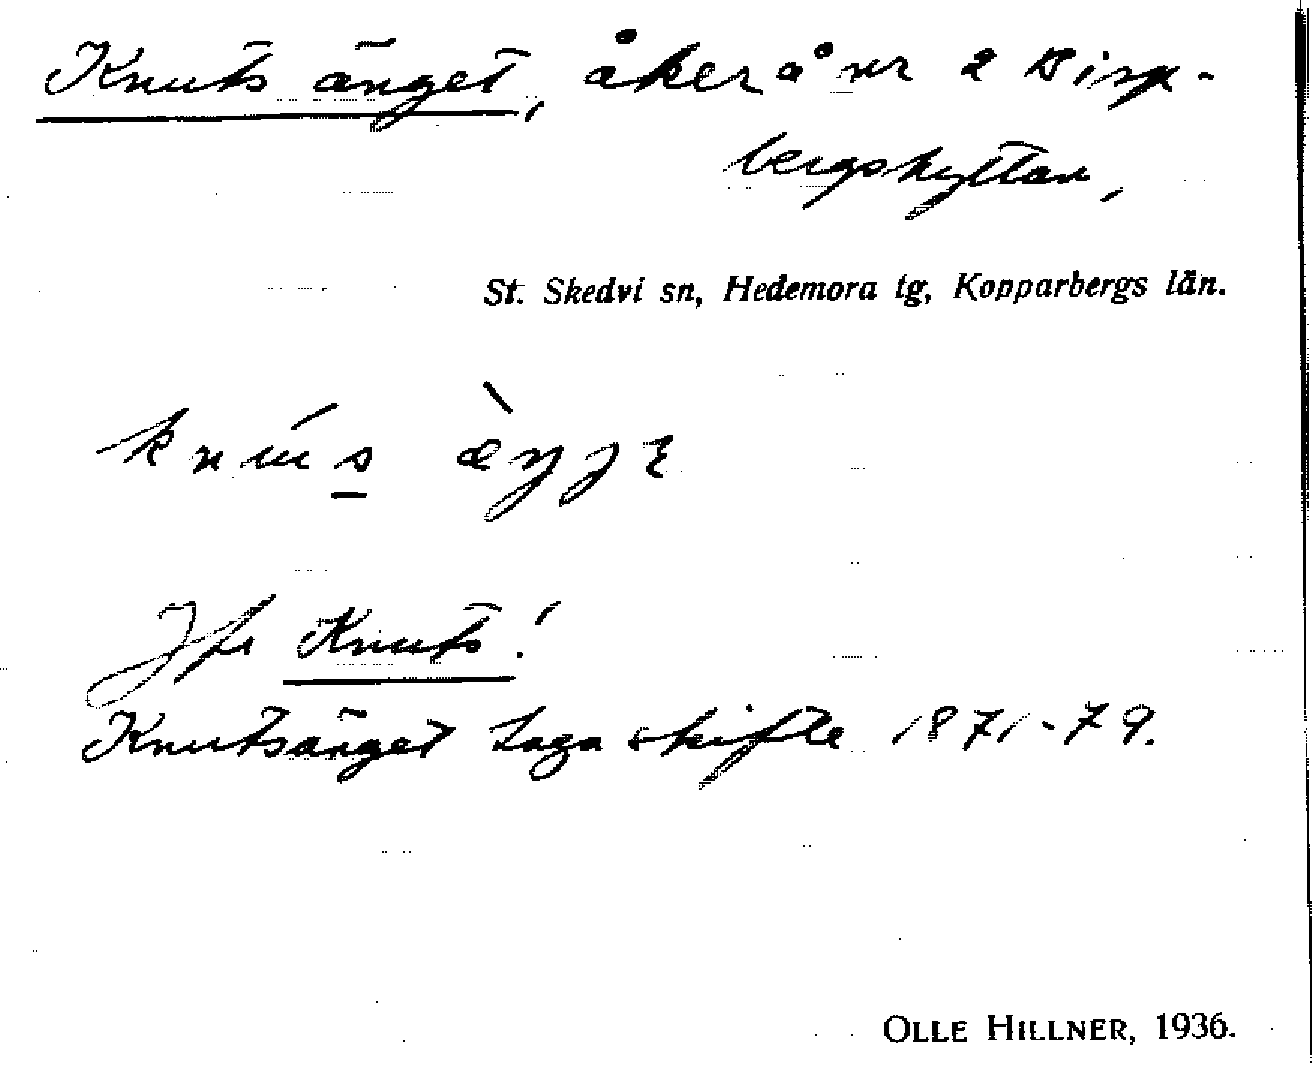 Knuts änget, åker å nr 2 Bisp-
bergshyttan,
St. Skedvi sn, Hedemora tg, Kopparbergs län.
Jfr Knuts!
Knutsänget Laga skifte 1871-79.
OLLE HILLNER, 1936.